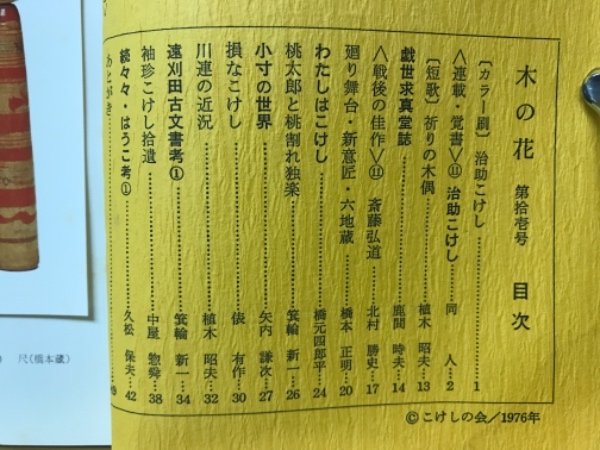 木の花 第拾壱号 目次
〔カラー刷〕 治助こけし……1
〈連載・覚書〉⑪ 治助こけし……同 人…2
〔短歌〕 祈りの木偶……植木 昭夫…13
戯世求真堂誌……鹿間 時夫…14
〈戦後の佳作〉⑪ 斎藤弘道……北村 勝史…17
廻り舞台・新意匠・六地蔵……橋本 正明…20
わたしはこけし……橋元四郎平…24
桃太郎と桃割れ独楽……箕輪 新一…26
小寸の世界……矢内 謙次…27
損なこけし……俵 有作…30
川連の近況……植木 昭夫…32
遠刈田古文書考①……箕輪 新一…34
袖珍こけし拾遺……中屋 惣舜…38
続々々・はうこ考①……久松 保夫…42
あとがき……49
©こけしの会/1976年
尺(橋本蔵)